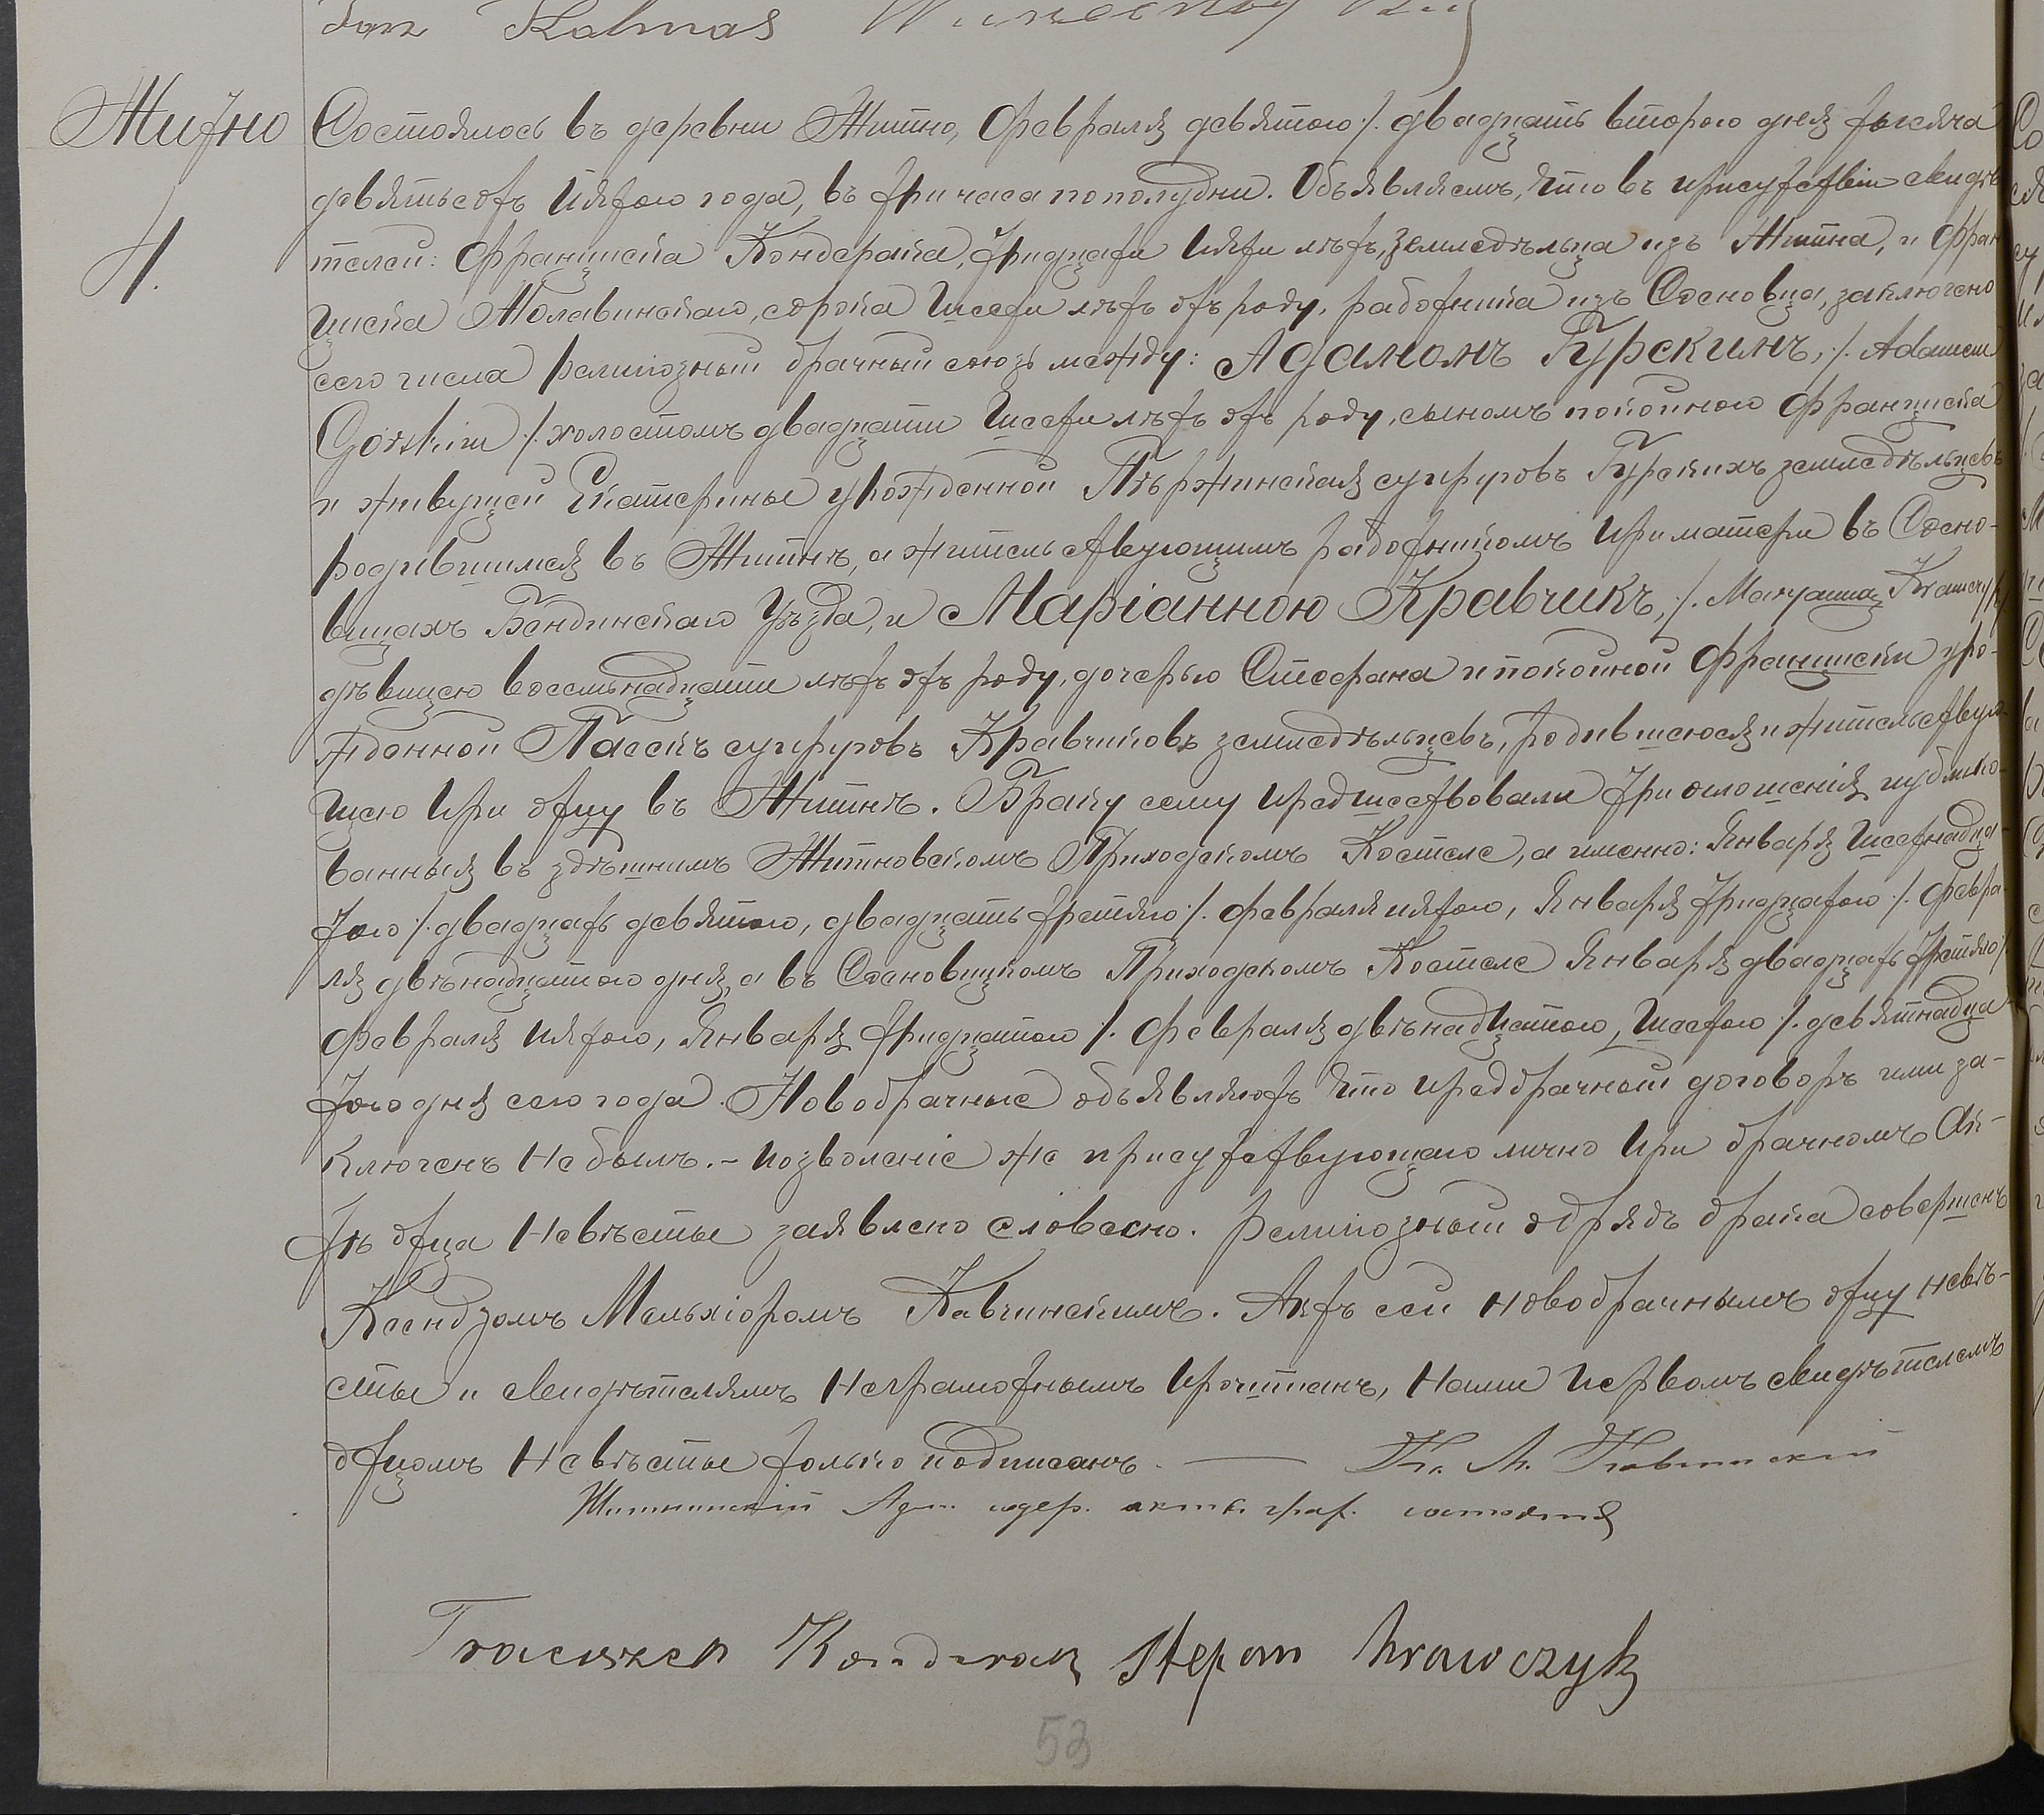 Jan Kalmas
Житно
Состоялось въ деревни Житно, Февраля девятого /. двадцать второго дня тысяча
4.
девятьсотъ пятого года, въ три часа пополудни. Объявляемъ, что въ присутствіи свидѣ
телей: Францишка Кондерака, тридцати пяти лѣтъ, земледѣльца изъ Житна, и Фран
цишка Молавинскаго, сорока шести лѣтъ отъ роду, работника изъ Сосновца, заключено
сего числа религіозный брачный союзъ между: Адамомъ Гурскимъ, /. Adamem
Górskim /. холостомъ двадцати шести лѣтъ отъ роду, сыномъ покойного Францишка
и живущей Екатерины урожденной Пѣржинская супруговъ Гурскихъ земледѣльцевъ
родившимся въ Житнѣ, а жительствующимъ работникомъ при матери въ Сосно-
вицахъ Бендинскаго Уѣзда, и Маріанною Кравчикъ, /. Maryanną Krawczyk /.
дѣвицею восемьнадцати лѣтъ отъ роду, дочерью Стефана и покойной Францишки уро-
жденной Пасекъ супруговъ Кравчиковъ земледѣльцевъ, родившеюся и жительствую
щею при отцу въ Житнѣ. Браку сему предшествовали три оглошенія публико-
ванныя въ здѣшнимъ Житновскомъ Приходскомъ Костеле, а именно: Января шестнадца-
того /. двадцать девятого, двадцать третяго /. Февраля пятого, Января тридцатого /. Февра-
ля двѣнадцатого дня, а въ Сосновицкомъ Приходскомъ Костеле Января двадцать третяго /.
Февраля пятого, Января тридцатого /. Февраля двѣнадцатого, шестого /. девятнадца
того дня сего года. Новобрачные объявляютъ что предбрачный договоръ ими за-
ключенъ не былъ. - Позволеніе же присутствующаго лично при брачномъ Ак-
тѣ отца невѣсты заявлено словесно. Религіозный обрядъ брака совершенъ
Ксендзомъ Мельхіоромъ Кавчинскимъ. Актъ сей новобрачнымъ отцу невѣ-
сты и свидѣтелямъ неграмотнымъ прочитанъ, Нами первомъ свидѣтелемъ
отцомъ невѣсты только подписанъ. — Кс. М. Кавчинскій
Житнинскій Адм. содер. актъ граж. состоянія
Franciszek Konderak Stepan Krawczyk
53